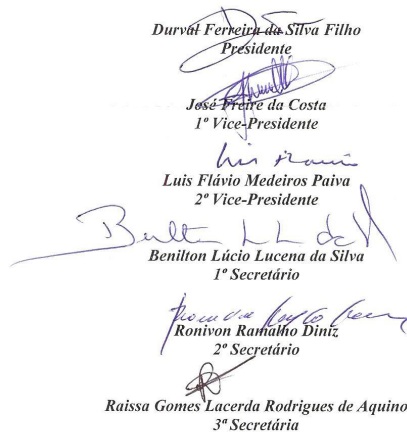 Durval Ferreira da Silva Filho
Presidente
José Freire da Costa
1º Vice-Presidente
Luis Flávio Medeiros Paiva
2º Vice-Presidente
Benilton Lúcio Lucena da Silva
1º Secretário
Ronivon Ramalho Diniz
2º Secretário
Raissa Gomes Lacerda Rodrigues de Aquino
3ª Secretária